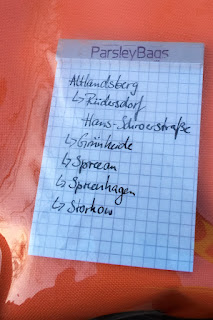 ParsleyBags
Altlandsberg
↳ Rüdersdorf
Hans-Schroerstraße
↳ Grünheide
↳ Spreeau
↳ Spreenhagen
↳ Storkow